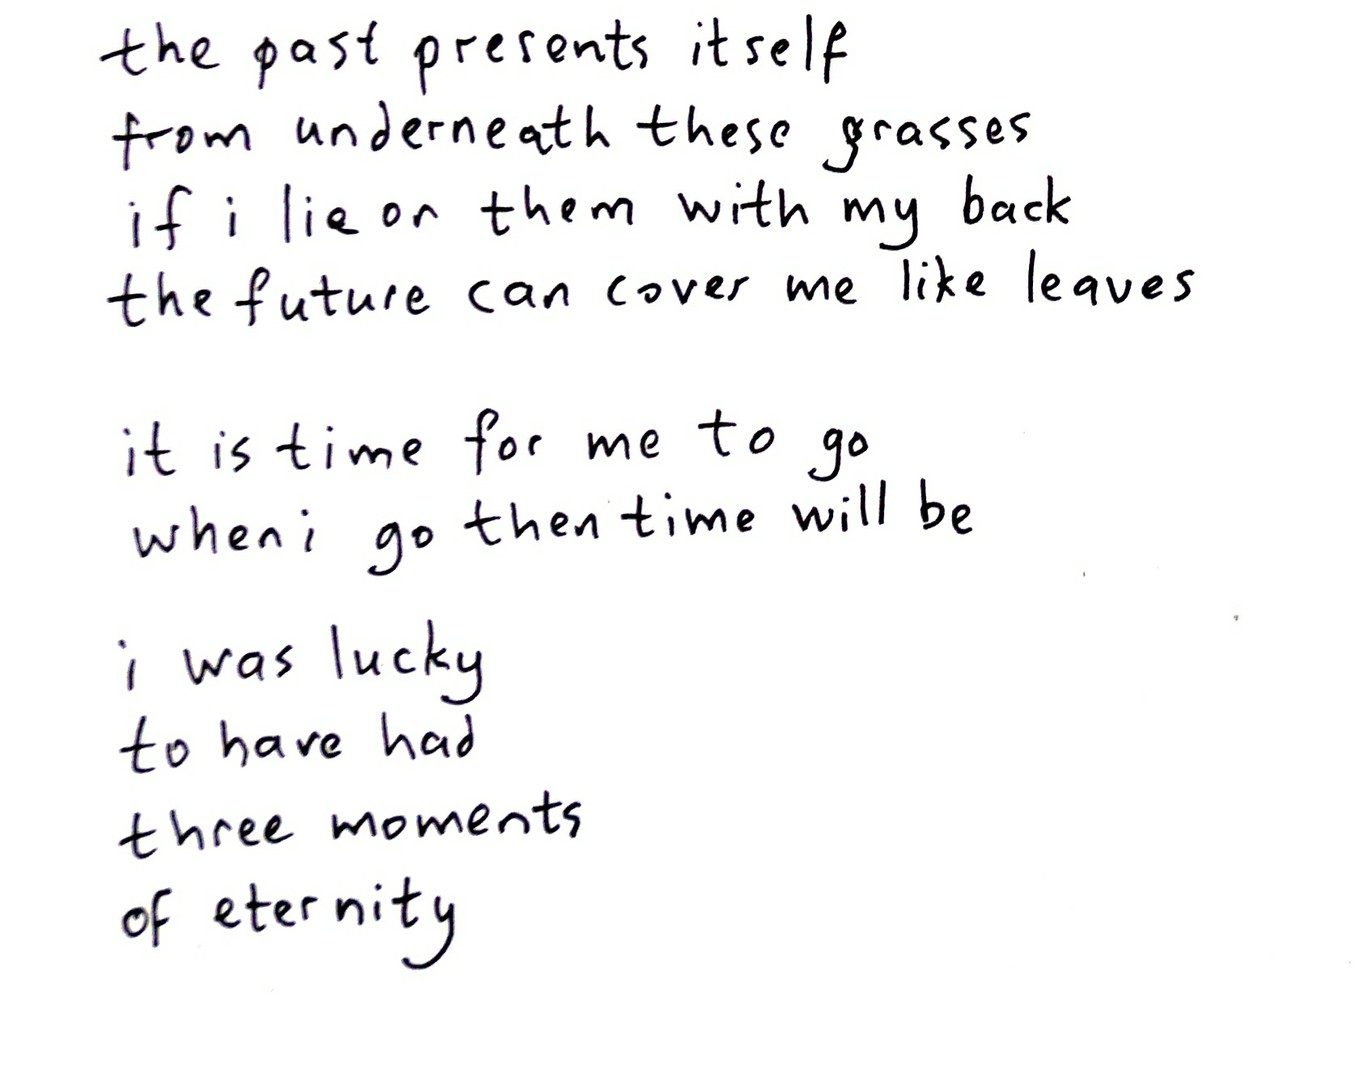 the past presents itself
from underneath these grasses
if i lie on them with my back
the future can cover me like leaves
it is time for me to go
when i go then time will be
i was lucky
to have had
three moments
of eternity